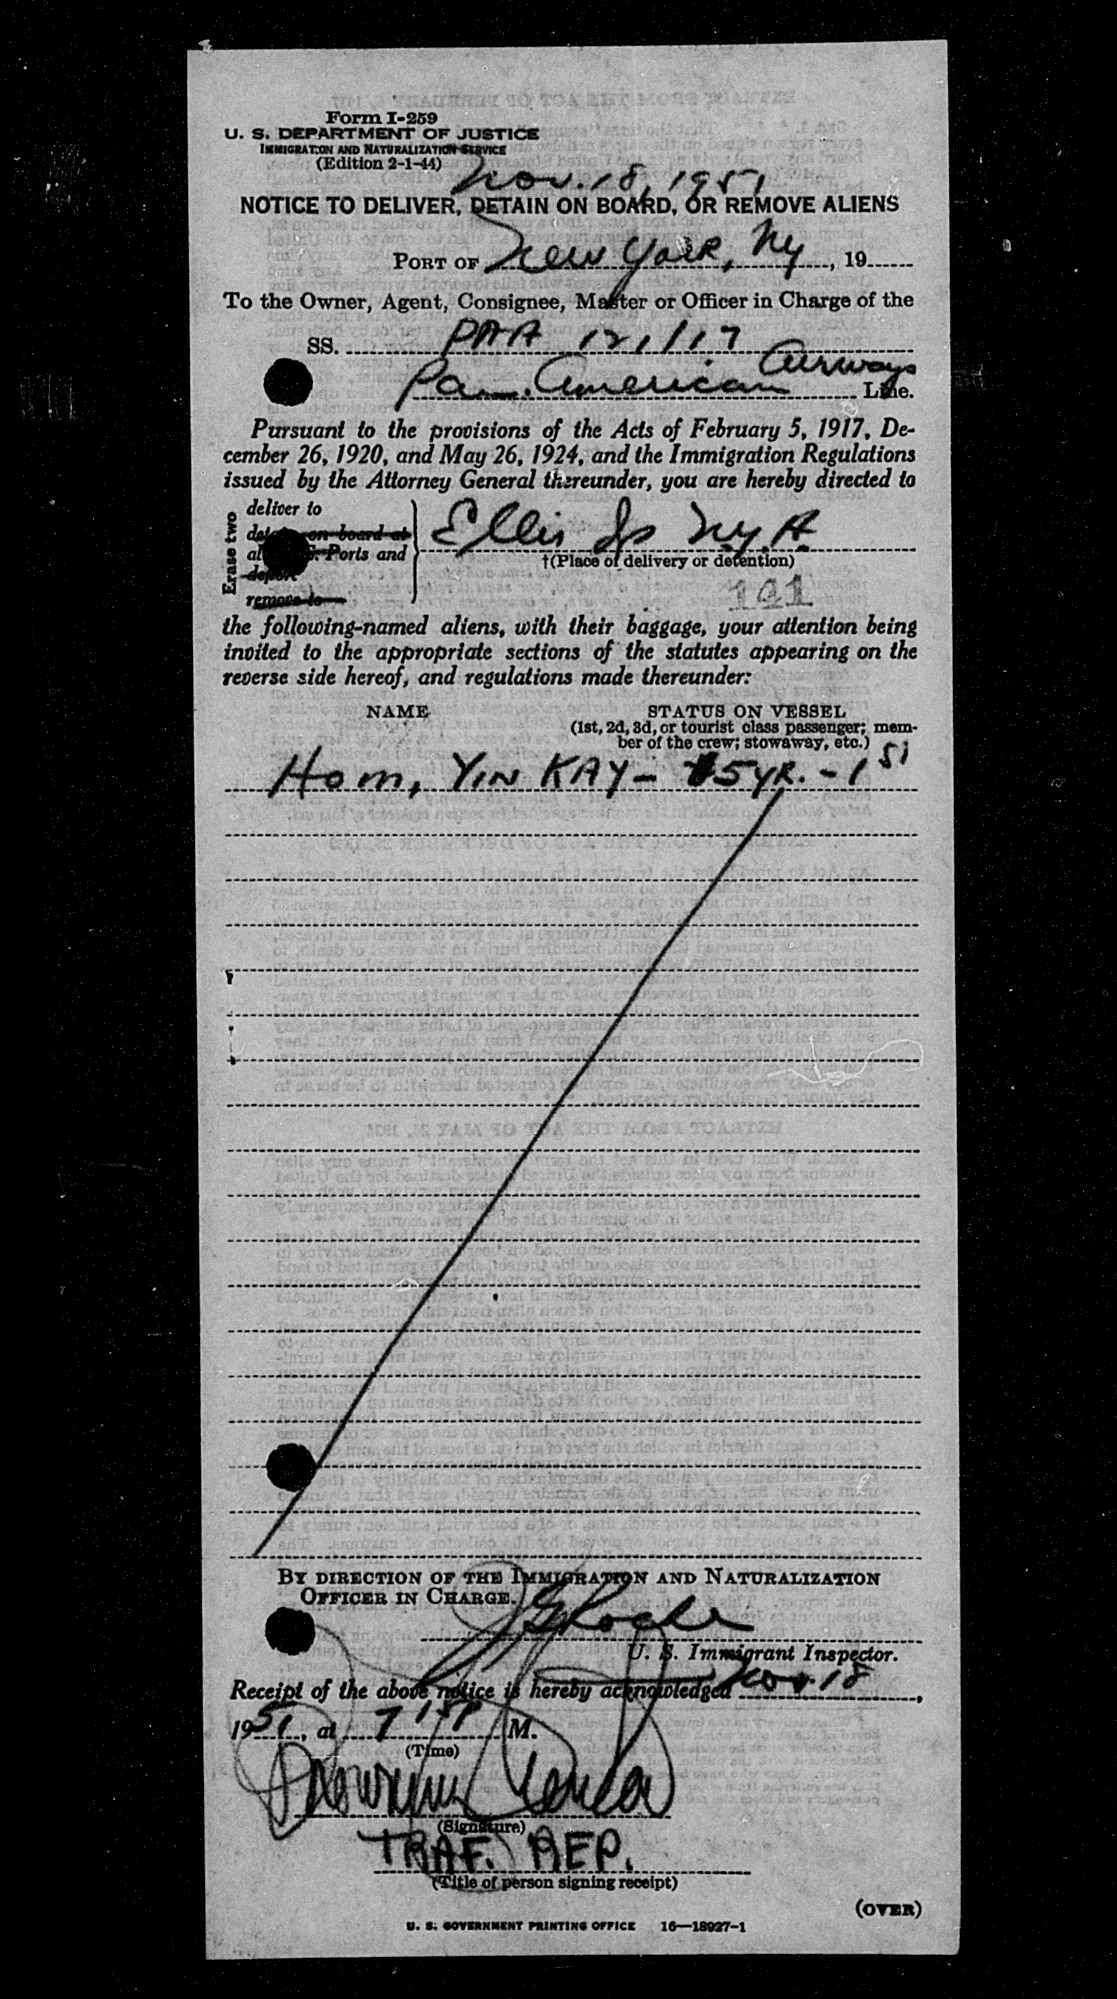 Form I-259
U. S. DEPARTMENT OF JUSTICE
IMMIGRATION AND NATURALIZATION SERVICE
(Edition 2-1-44)
Nov. 18, 1951
NOTICE TO DELIVER, DETAIN ON BOARD, OR REMOVE ALIENS
PORT OF New York, Ny, 19
To the Owner, Agent, Consignee, Master or Officer in Charge of the
SS. PAA 121/17
Pan. American Airways Line.
Pursuant to the provisions of the Acts of February 5, 1917, De-
cember 26, 1920, and May 26, 1924, and the Immigration Regulations
issued by the Attorney General thereunder, you are hereby directed to
Erase two
deliver to
detain on board at
Ports and
deport
remove to
Ellis Is N.Y.H.
†(Place of delivery or detention)
141
the following-named aliens, with their baggage, your attention being
invited to the appropriate sections of the statutes appearing on the
reverse side hereof, and regulations made thereunder:
NAME STATUS ON VESSEL
(1st, 2d, 3d, or tourist class passenger; mem-
ber of the crew; stowaway, etc.)
Hom, YIN KAY - 5 YR. - 1st
BY DIRECTION OF THE IMMIGRATION AND NATURALIZATION
OFFICER IN CHARGE.
U. S. Immigrant Inspector.
Receipt of the above notice is hereby acknowledged Nov. 18,
1951, at 7 15P M.
(Time)
(Signature)
TRAF. REP.
(Title of person signing receipt)
(OVER)
U. S. GOVERNMENT PRINTING OFFICE 16—18927-1